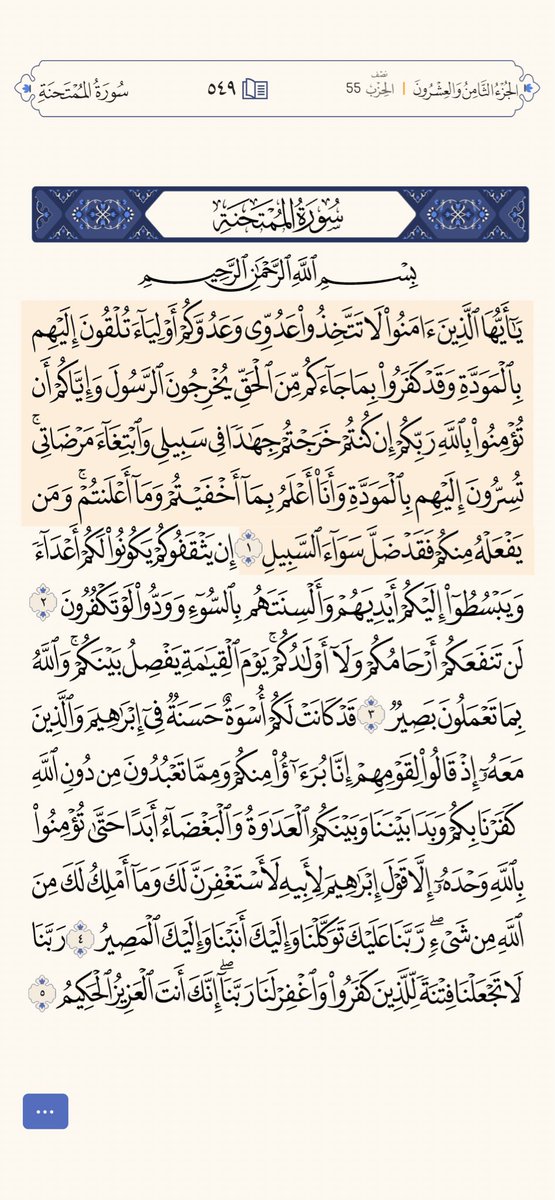 الجُزْءُ الثَّامِنُ وَالعِشْرُونَ | نصف الحِزْبُ 55 ٥٤٩ سُورَةُ المُمْتَحنَةِ
سُورَةُ المُمْتَحنَةِ
بِسْمِ ٱللَّهِ ٱلرَّحْمَٰنِ ٱلرَّحِيمِ
يَٰٓأَيُّهَا ٱلَّذِينَ ءَامَنُواْ لَا تَتَّخِذُواْ عَدُوِّى وَعَدُوَّكُمْ أَوْلِيَآءَ تُلْقُونَ إِلَيْهِم
بِٱلْمَوَدَّةِ وَقَدْ كَفَرُواْ بِمَا جَآءَكُم مِّنَ ٱلْحَقِّ يُخْرِجُونَ ٱلرَّسُولَ وَإِيَّاكُمْ أَن
تُؤْمِنُواْ بِٱللَّهِ رَبِّكُمْ إِن كُنتُمْ خَرَجْتُمْ جِهَٰدًا فِى سَبِيلِى وَٱبْتِغَآءَ مَرْضَاتِىۚ
تُسِرُّونَ إِلَيْهِم بِٱلْمَوَدَّةِ وَأَنَا۠ أَعْلَمُ بِمَآ أَخْفَيْتُمْ وَمَآ أَعْلَنتُمْۚ وَمَن
يَفْعَلْهُ مِنكُمْ فَقَدْ ضَلَّ سَوَآءَ ٱلسَّبِيلِ ١ إِن يَثْقَفُوكُمْ يَكُونُواْ لَكُمْ أَعْدَآءً
وَيَبْسُطُوٓاْ إِلَيْكُمْ أَيْدِيَهُمْ وَأَلْسِنَتَهُم بِٱلسُّوٓءِ وَوَدُّواْ لَوْ تَكْفُرُونَ ٢
لَن تَنفَعَكُمْ أَرْحَامُكُمْ وَلَآ أَوْلَٰدُكُمْۚ يَوْمَ ٱلْقِيَٰمَةِ يَفْصِلُ بَيْنَكُمْۚ وَٱللَّهُ
بِمَا تَعْمَلُونَ بَصِيرٌ ٣ قَدْ كَانَتْ لَكُمْ أُسْوَةٌ حَسَنَةٌ فِىٓ إِبْرَٰهِيمَ وَٱلَّذِينَ
مَعَهُۥٓ إِذْ قَالُواْ لِقَوْمِهِمْ إِنَّا بُرَءَٰٓؤُاْ مِنكُمْ وَمِمَّا تَعْبُدُونَ مِن دُونِ ٱللَّهِ
كَفَرْنَا بِكُمْ وَبَدَا بَيْنَنَا وَبَيْنَكُمُ ٱلْعَدَٰوَةُ وَٱلْبَغْضَآءُ أَبَدًا حَتَّىٰ تُؤْمِنُواْ
بِٱللَّهِ وَحْدَهُۥٓ إِلَّا قَوْلَ إِبْرَٰهِيمَ لِأَبِيهِ لَأَسْتَغْفِرَنَّ لَكَ وَمَآ أَمْلِكُ لَكَ مِنَ
ٱللَّهِ مِن شَىْءٍۖ رَّبَّنَا عَلَيْكَ تَوَكَّلْنَا وَإِلَيْكَ أَنَبْنَا وَإِلَيْكَ ٱلْمَصِيرُ ٤ رَبَّنَا
لَا تَجْعَلْنَا فِتْنَةً لِّلَّذِينَ كَفَرُواْ وَٱغْفِرْ لَنَا رَبَّنَآۖ إِنَّكَ أَنتَ ٱلْعَزِيزُ ٱلْحَكِيمُ ٥